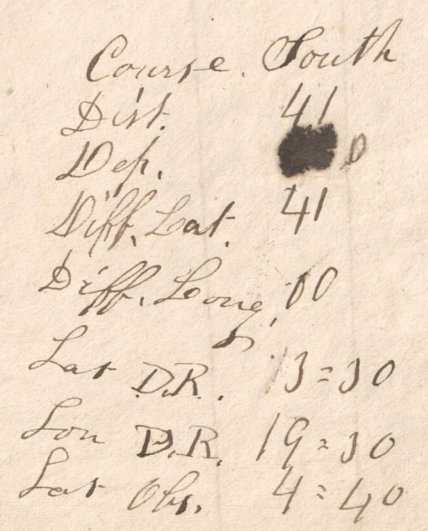 Course. South
Dist. 41
Dep. 0
Diff. Lat. 41
Diff. Long. 00
Lat D.R. 13=30
Lon D.R. 19=30
Lat Obs. 4=40